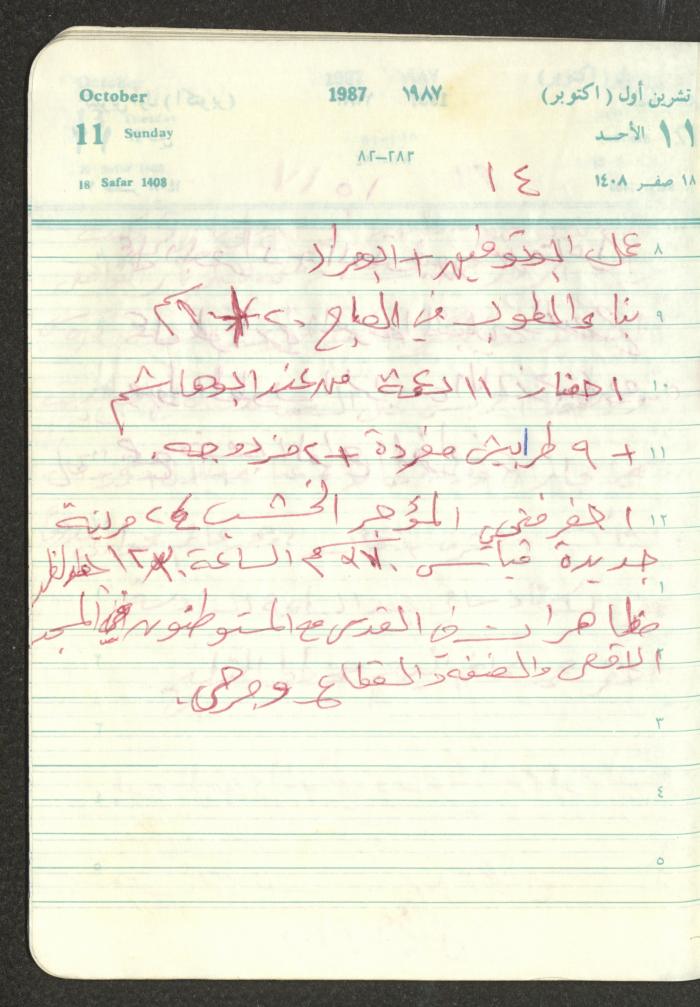 October 1987 ١٩٨٧ تشرين أول (اكتوبر)
11 Sunday ١١ الأحد
٢٨٣–٨٢
18 Safar 1408 ١٨ صفر ١٤٠٨
١٤
٨ عمل ابوتوفيق + ابومراد
٩ بناء والطوب في الصباح
١٠ احضار ١١ دعمة من عند ابوهاشم
١١ + ٩ طرابيش مفردة + ٢ مزدوجه.
١٢ احضر فتحي المؤجر الخشب ٢٤ مرينة
جديدة قياس الساعة
١
مظاهرات في القدس مع المستوطنون في المسجد
٢ الاقصى والضفة والقطاع وجرحى.
٣
٤
٥